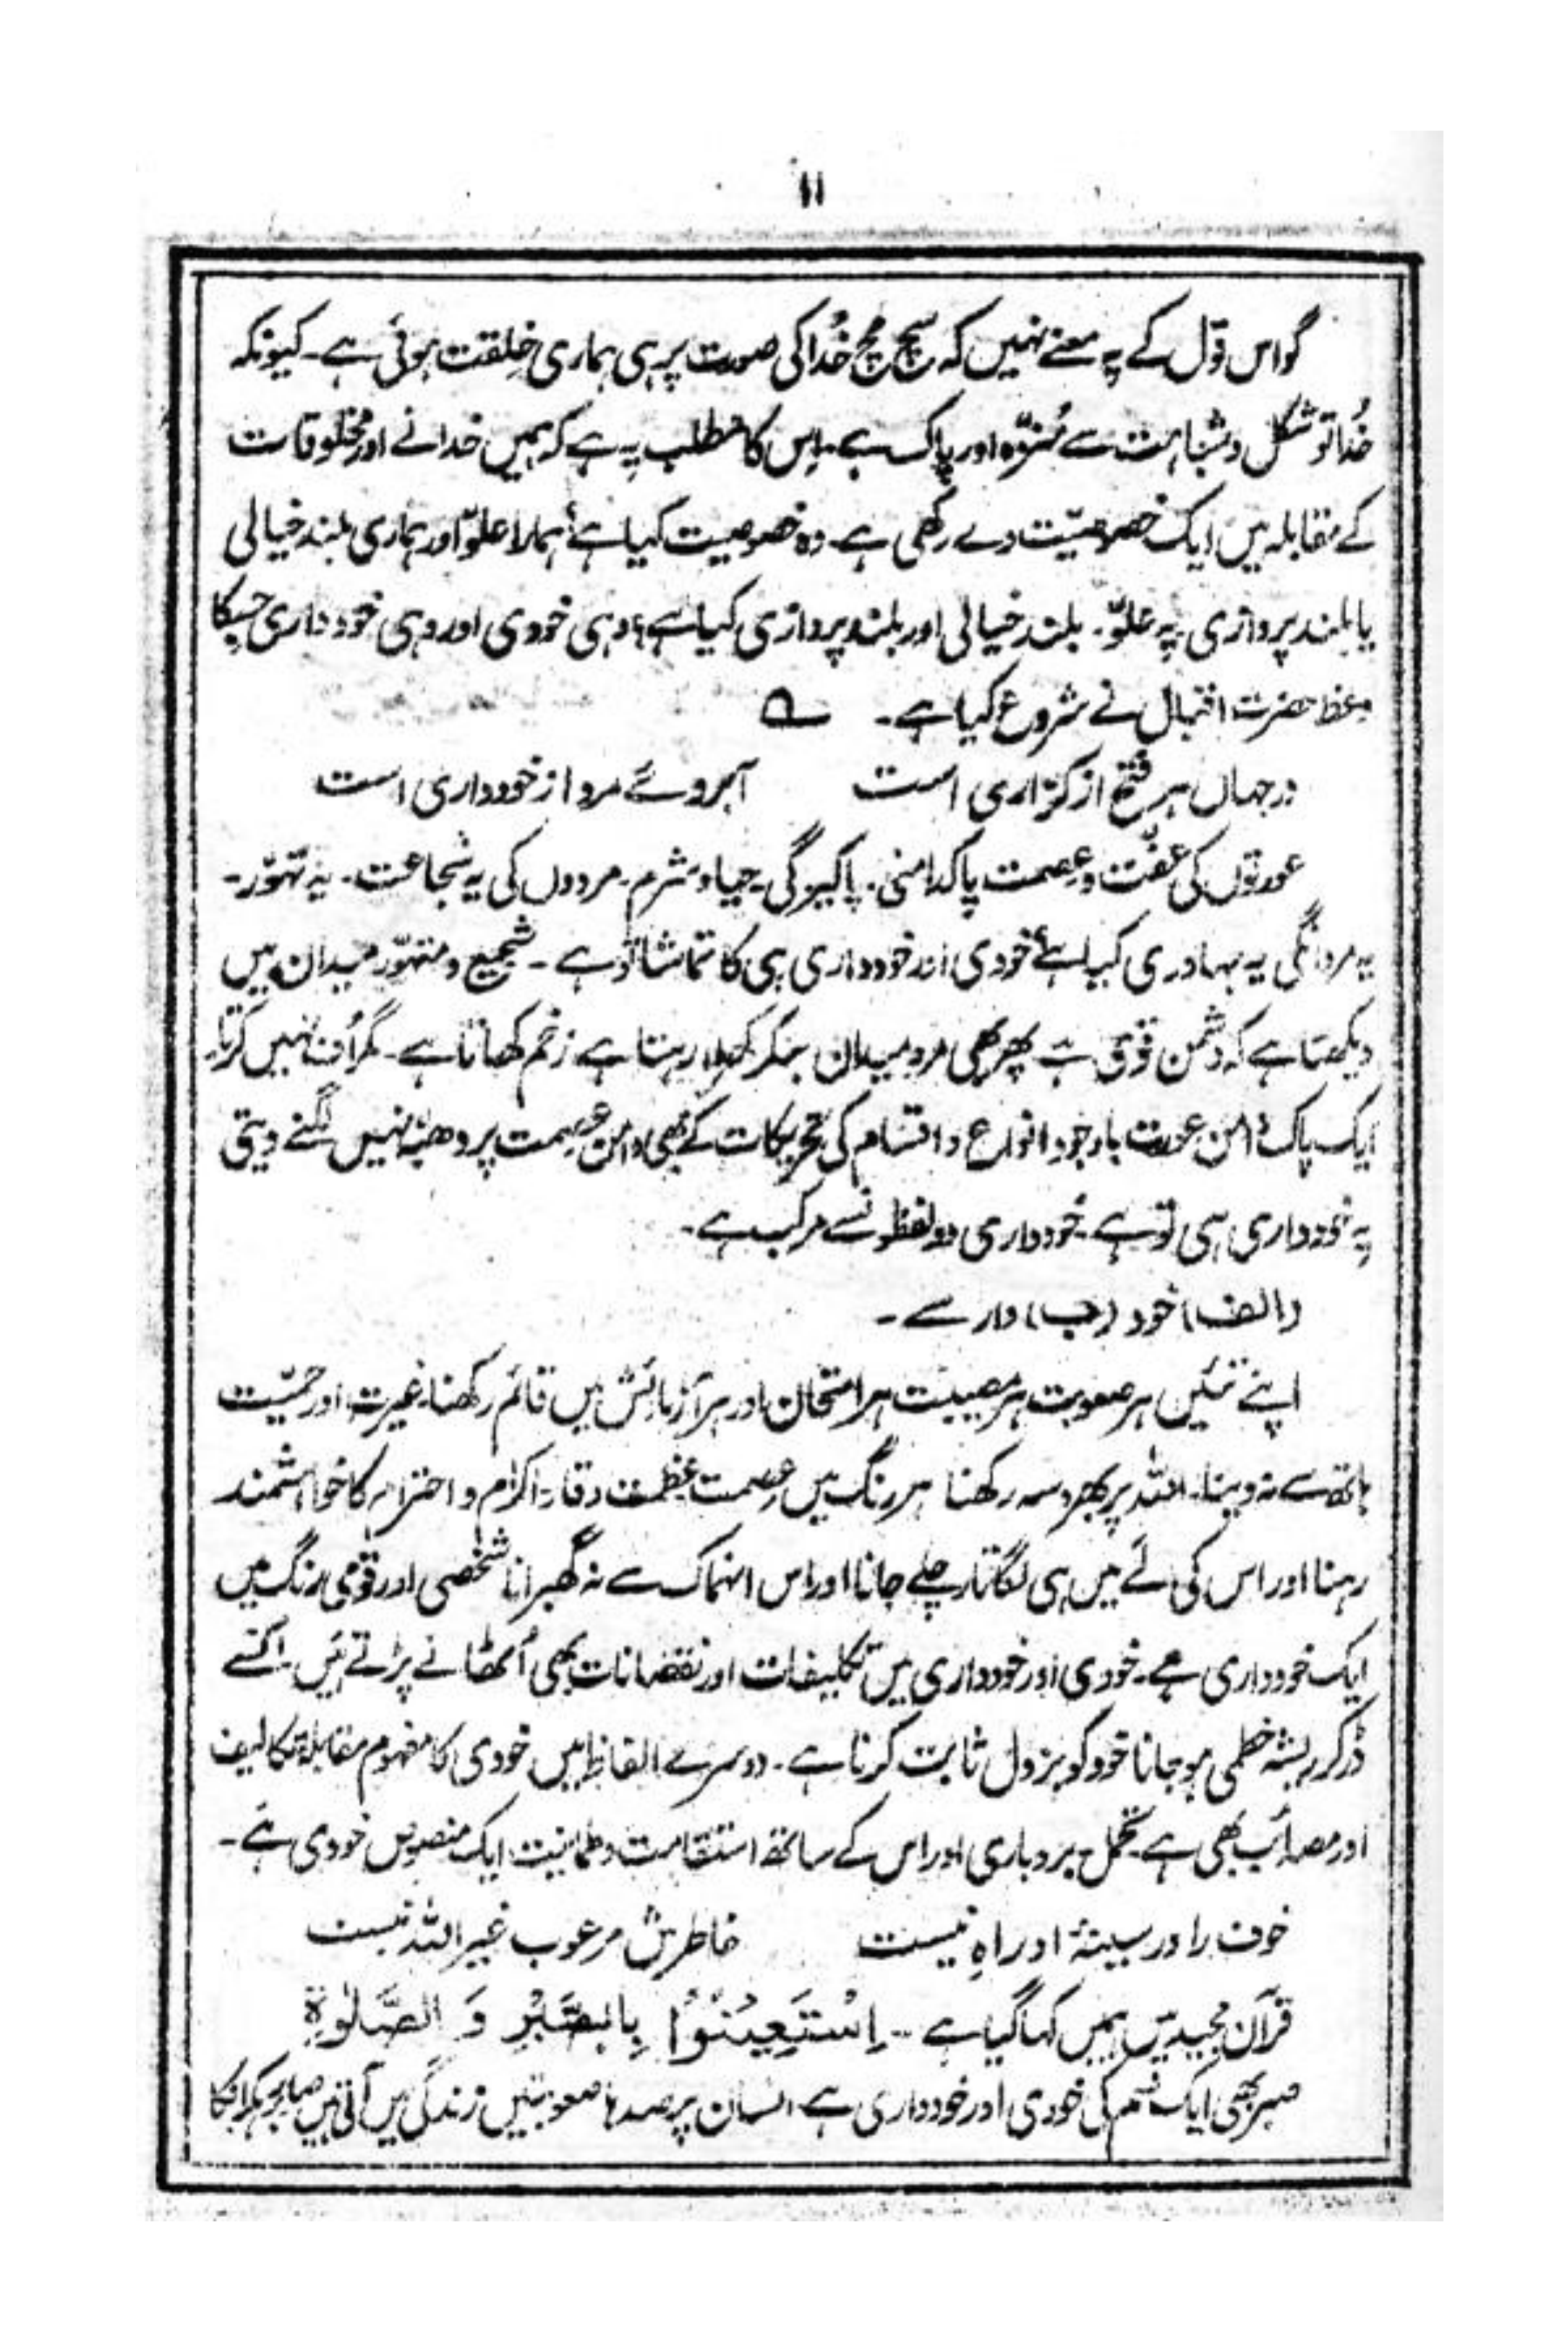 ۱۱
گو اس قول کے یہ معنے نہیں کہ سچ مچ خُدا کی صورت پر ہی ہماری خِلقت ہوئی ہے۔ کیونکہ
خُدا تو شکل و شباہت سے مُنزّہ اور پاک ہے۔ اِس کا مطلب یہ ہے کہ ہمیں خدا نے اور مخلوقات
کے مقابلہ میں ایک خصوصیّت دے رکھی ہے۔ وہ خصوصیت کیا ہے؟ ہمارا علوّ اور ہماری بلند خیالی
یا بلند پروازی یہ علوّ۔ بلند خیالی اور بلند پروازی کیا ہے؟ وہی خودی اور وہی خودداری جسکا
وعظ حضرت اقبال نے شروع کیا ہے۔ ؎
در جہاں ہر فتح از کرّاری است آبروئے مرد از خودداری است
عورتوں کی عفّت و عِصمت پاکدامنی۔ پاکیزگی۔ حیا و شرم۔ مردوں کی یہ شجاعت۔ یہ تہوّر۔
یہ مردانگی یہ بہادری کیا ہے؟ خودی اور خودداری ہی کا تماشا تو ہے۔ شجیع و متہوّر میدان میں
دیکھتا ہے کہ دشمن قوی ہے پھر بھی مرد میدان بنکر کھڑا رہتا ہے زخم کھاتا ہے۔ مگر اُف نہیں کرتا۔
ایک پاک دامن عورت باوجود انواع و اقسام کی تحریکات کے بھی دامن عِصمت پر دھبّہ نہیں لگنے دیتی
یہ خودداری ہی تو ہے۔ خودداری دو لفظوں سے مرکب ہے۔
(الف) خود (ب) دار سے۔
اپنے تئیں ہر صعوبت ہر مصیبت ہر امتحان اور ہر آزمائش میں قائم رکھنا۔ غیرت اور حمیّت
ہاتھ سے نہ دینا۔ اللہ پر بھروسہ رکھنا ہر رنگ میں عِصمت عظمت وقار۔ اکرام و احترام کا خواہشمند
رہنا اور اس کی لَے میں ہی لگاتار چلے جانا اور اس انہماک سے نہ گھبرانا شخصی اور قومی رنگ میں
ایک خودداری ہے۔ خودی اور خودداری میں تکلیفات اور نقصانات بھی اُٹھانے پڑتے ہیں۔ اُنسے
ڈر کر ریشہ خطمی ہو جانا خود کو بزدل ثابت کرنا ہے۔ دوسرے الفاظ میں خودی کا مفہوم مقابلۂ تکالیف
اور مصائب بھی ہے۔ تحمل بردباری اور اس کے ساتھ استقامت و طمانیت ایک منصوص خودی ہے۔
خوف را در سینۂ او راہ نیست خاطرش مرعوب غیر اللہ نیست
قرآن مجید میں ہمیں کہا گیا ہے۔ اِسْتَعِيْنُوْا بِالصَّبْرِ وَ الصَّلٰوةِ
صبر بھی ایک قسم کی خودی اور خودداری ہے انسان پر صدہا صعوبتیں زندگی میں آتی ہیں صابر